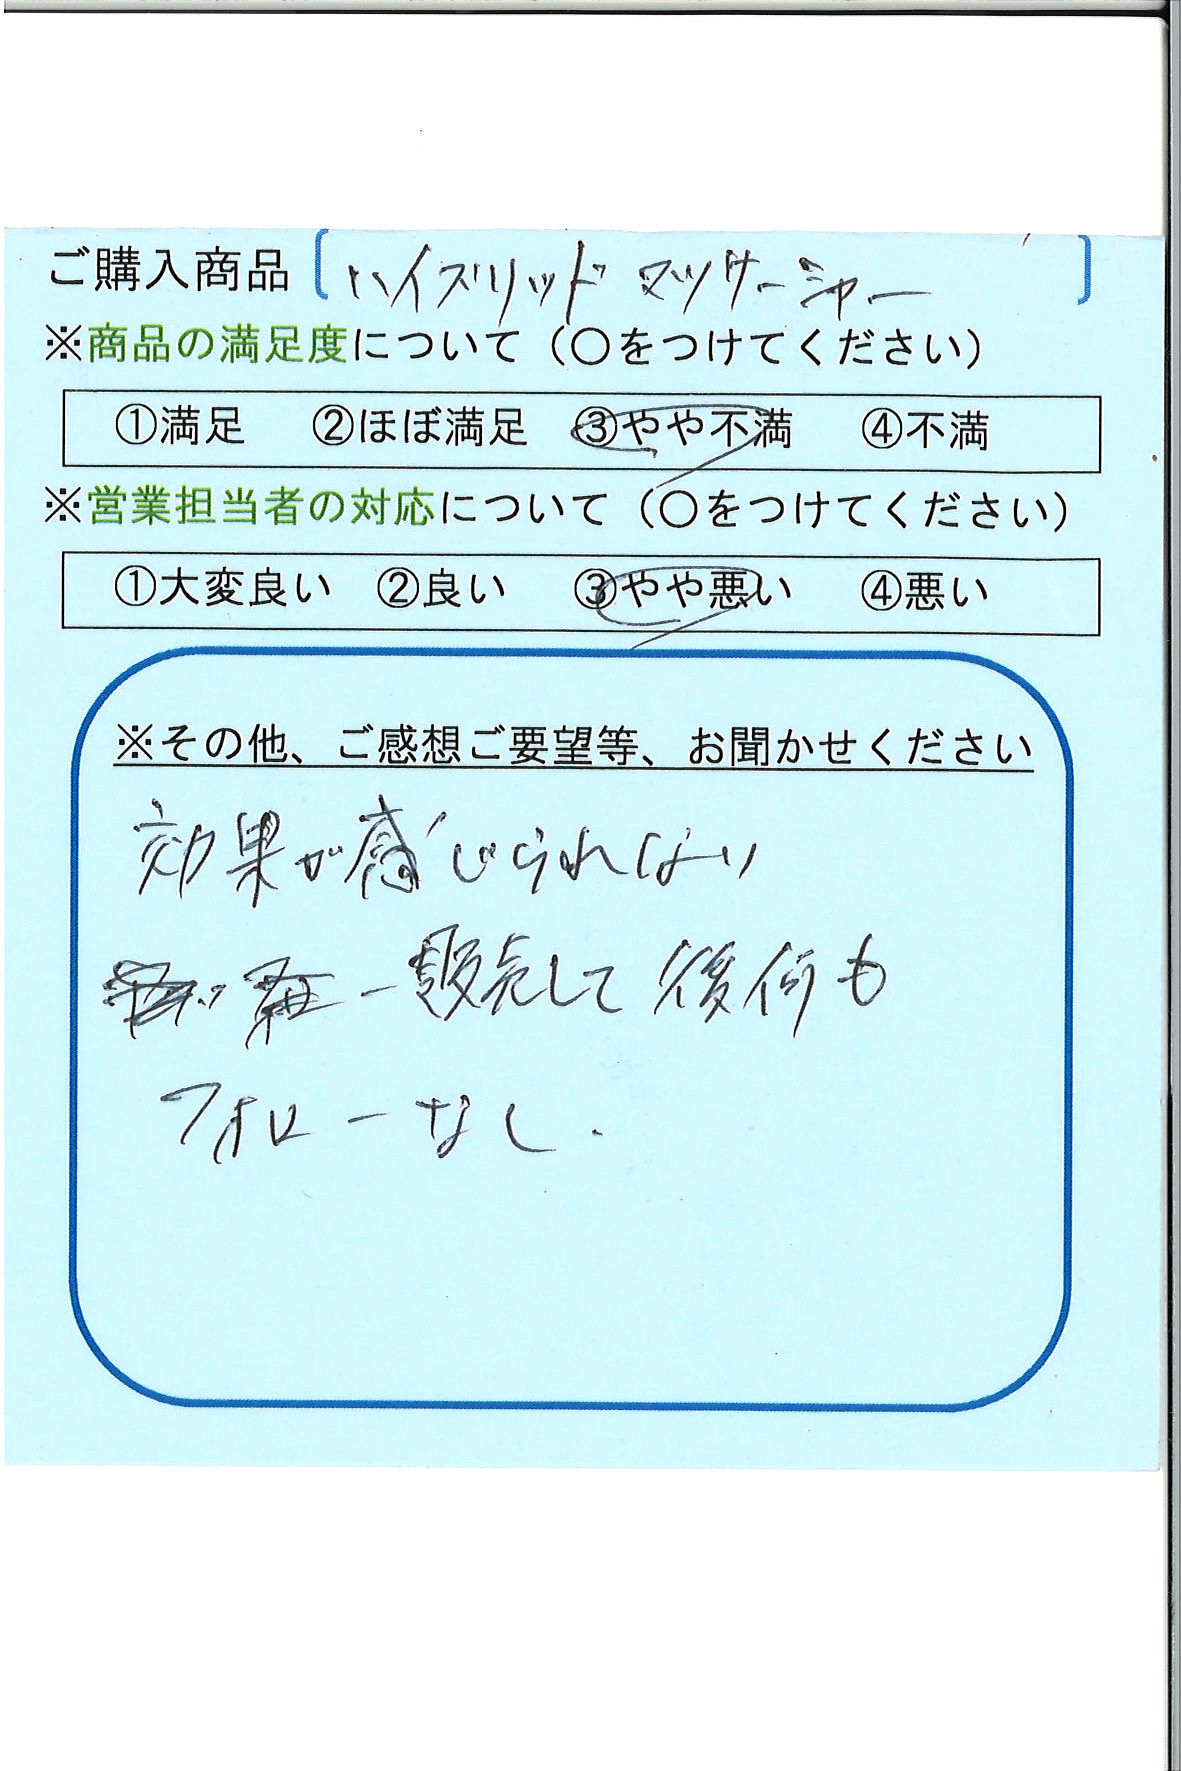 ご購入商品 [ハイブリッドマッサージャー]
※商品の満足度について（○をつけてください）
①満足 ②ほぼ満足 ③やや不満 ④不満
※営業担当者の対応について（○をつけてください）
①大変良い ②良い ③やや悪い ④悪い
※その他、ご感想ご要望等、お聞かせください
効果が感じられない
販売して後何も
フォローなし.